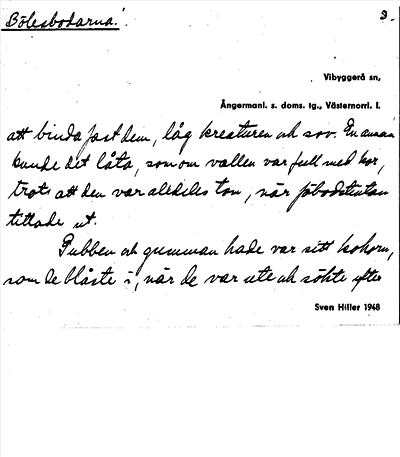 Bölesbodarna. 3.
Vibyggerå sn,
Ångermanl. s. doms. tg., Västernorrl. l.
att binda fast dem, låg kreaturen och sov. En annan
kunde det låta, som om vallen var full med kor,
trots att den var alldeles tom, när fäbodstintan
tittade ut.
Gubben och gumman hade var sitt kohorn,
som de blåste i, när de var ute och sökte efter
Sven Hiller 1948